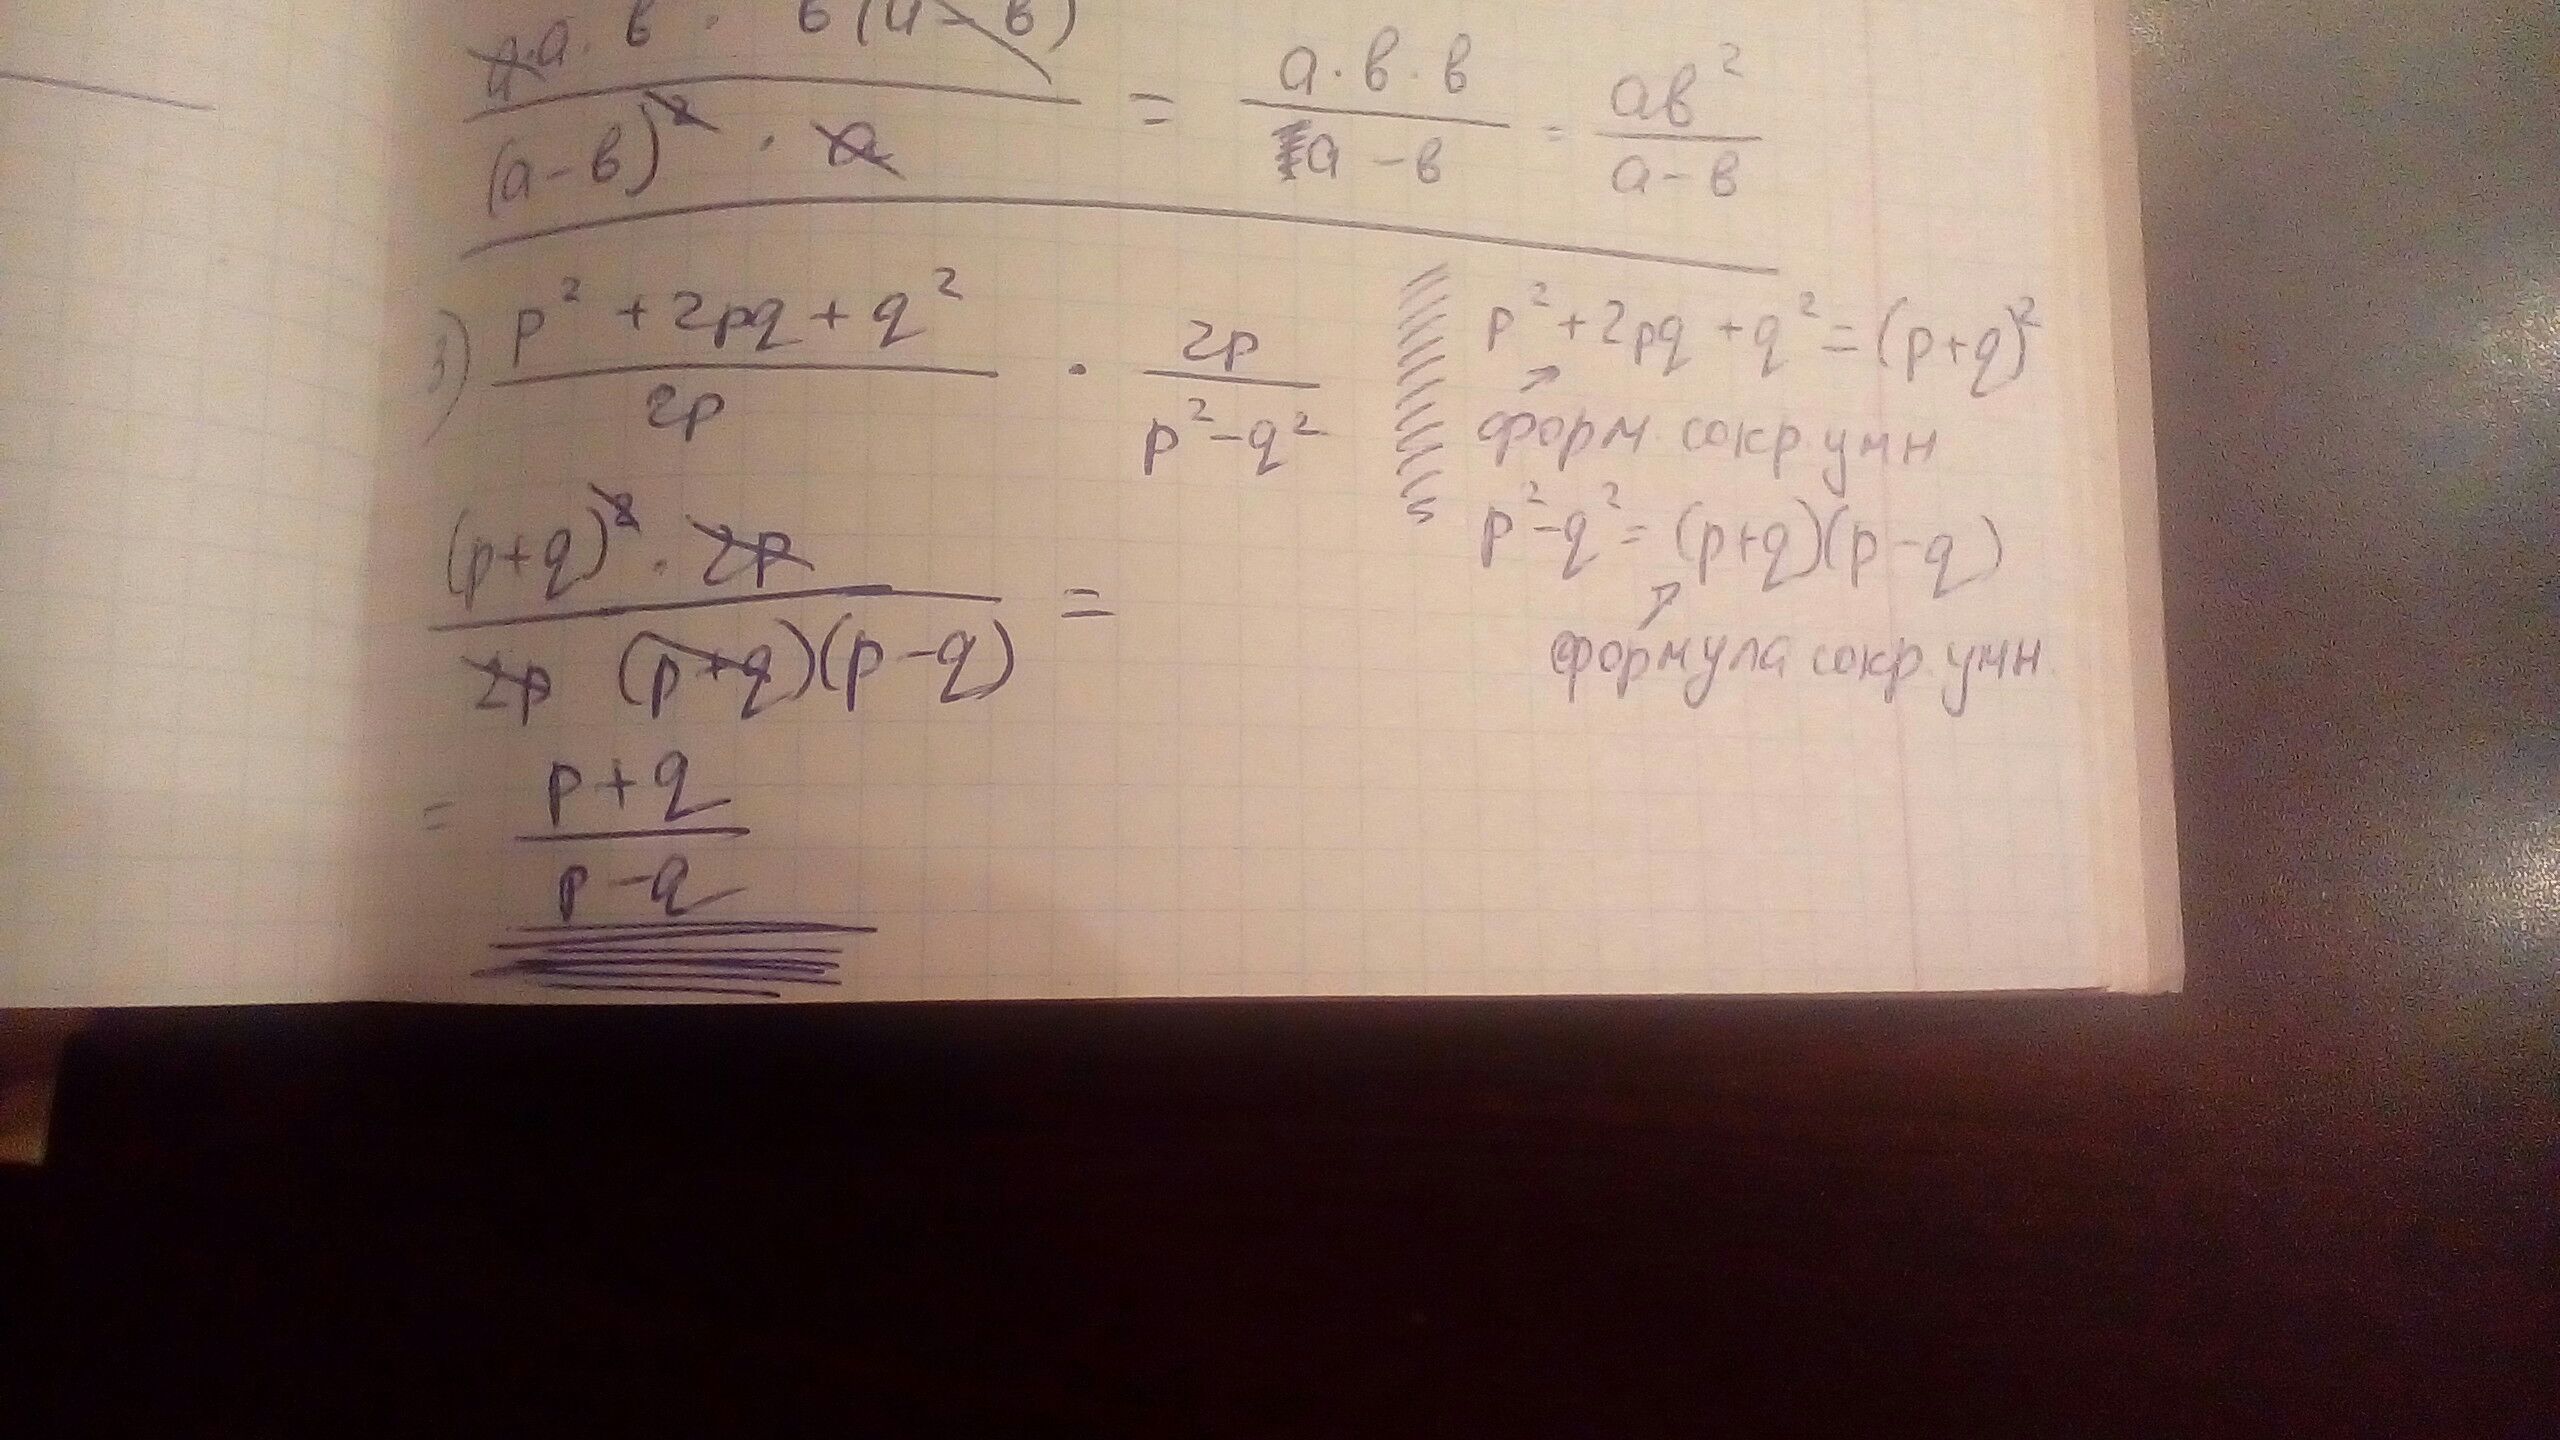 a·a·в · в(а-в)
(а-в)² · а
= а·в·в / а-в = ав² / а-в
3) p² + 2pq + q² / 2p · 2p / p²-q²
p² + 2pq + q² = (p+q)²
форм. сокр. умн
p²-q² = (p+q)(p-q)
формула сокр. умн.
(p+q)² · 2p / 2p (p+q)(p-q) =
= p+q / p-q